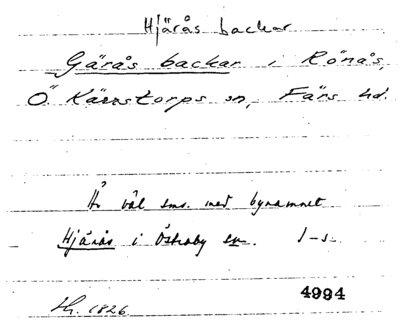 Hjärås backar
Gärås backar i Rönås,
Ö Kärrstorps sn, Färs hd.
Är väl sms. med bynamnet
Hjärås i Östraby sn. I-s.
4994
Sk. 1826